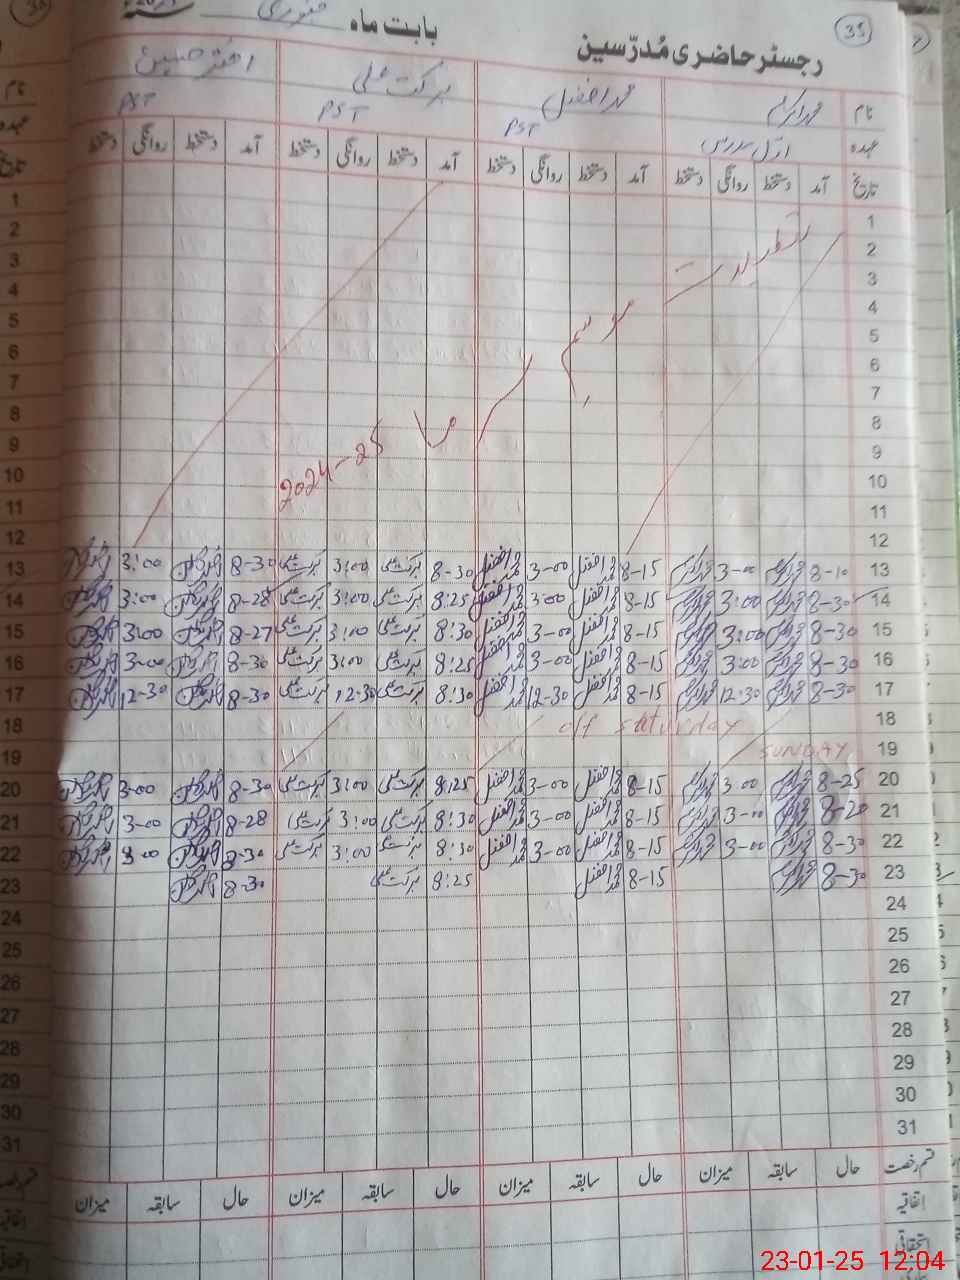 35
رجسٹر حاضری مُدرّسین بابت ماہ جنوری
نام محمد اکرم محمد افضل برکت علی اختر حسین
عہدہ اول مدرس PST PST PST
تاریخ آمد دستخط روانگی دستخط آمد دستخط روانگی دستخط آمد دستخط روانگی دستخط آمد دستخط روانگی دستخط
1
2
3
4
5
6
7
8
9
10
11
12
موسم
2024-25
13 8-10 3-00 8-15 محمد افضل 3-00 محمد افضل 8-30 برکت علی 3:00 برکت علی 8-30 3:00
14 8-30 3:00 8-15 محمد افضل 3:00 محمد افضل 8:25 برکت علی 3:00 برکت علی 8-28 3:00
15 8-30 3:00 8-15 محمد افضل 3-00 محمد افضل 8:30 برکت علی 3:00 برکت علی 8-27 3:00
16 8-30 3:00 8-15 محمد افضل 3-00 محمد افضل 8:25 برکت علی 3:00 برکت علی 8-30 3-00
17 8-30 12-30 8-15 محمد افضل 12-30 محمد افضل 8:30 برکت علی 12-30 برکت علی 8-30 12-30
18 off saturday
19 SUNDAY
20 8-25 3-00 8-15 محمد افضل 3-00 محمد افضل 8:25 برکت علی 3:00 برکت علی 8-30 3-00
21 8-20 3-00 8-15 محمد افضل 3-00 محمد افضل 8:30 برکت علی 3:00 برکت علی 8-28 3-00
22 8-30 3-00 8-15 محمد افضل 3-00 محمد افضل 8:30 برکت علی 3:00 برکت علی 8-30 3-00
23 8-30 8-15 محمد افضل 8:25 برکت علی 8-30
24
25
26
27
28
29
30
31
قسم رخصت حال سابقہ میزان حال سابقہ میزان حال سابقہ میزان حال سابقہ میزان
اتفاقیہ
استحقاقی
23-01-25 12:04